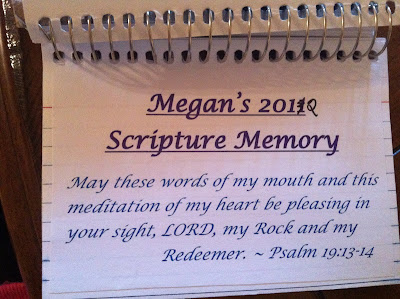 Megan's 2012
Scripture Memory
May these words of my mouth and this
meditation of my heart be pleasing in
your sight, LORD, my Rock and my
Redeemer. ~ Psalm 19:13-14